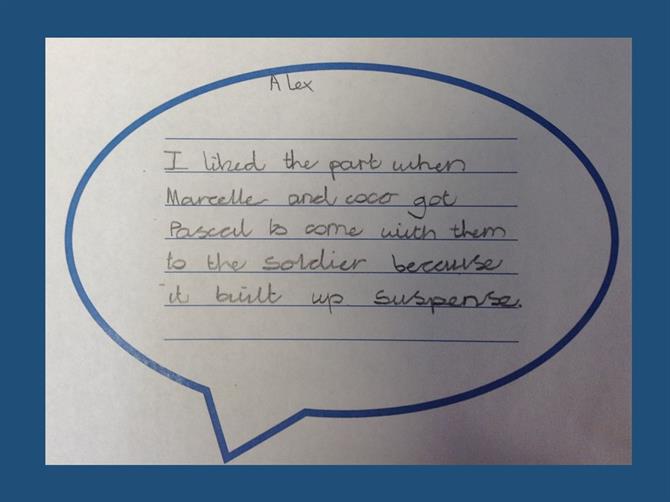 Alex
I liked the part when
Marcelle and coco got
Pascal to come with them
to the soldier because
it built up suspense.